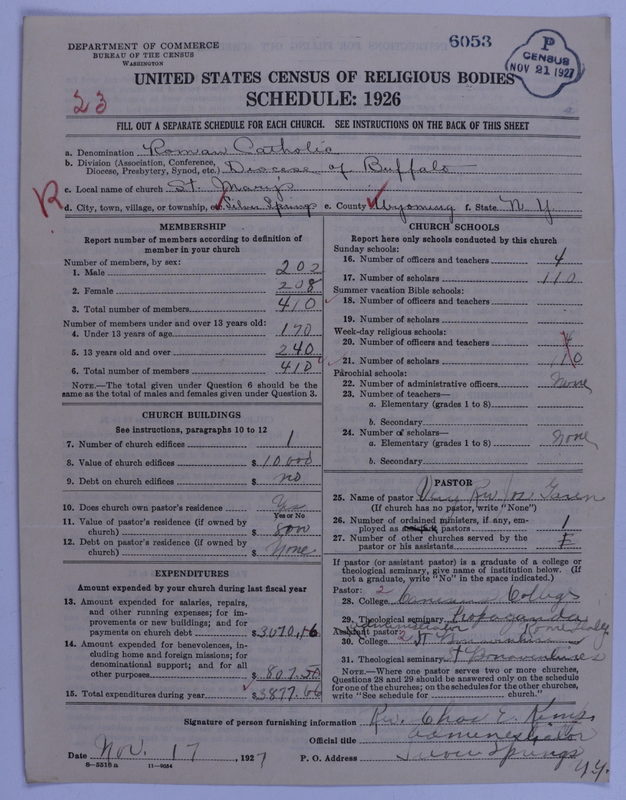 DEPARTMENT OF COMMERCE
BUREAU OF THE CENSUS
WASHINGTON
6053
P
CENSUS
NOV 21 1927
UNITED STATES CENSUS OF RELIGIOUS BODIES
SCHEDULE: 1926
23
FILL OUT A SEPARATE SCHEDULE FOR EACH CHURCH. SEE INSTRUCTIONS ON THE BACK OF THIS SHEET
a. Denomination Roman Catholic
b. Division (Association, Conference, Diocese, Presbytery, Synod, etc.) Diocese of Buffalo
c. Local name of church St. Marys
R
d. City, town, village, or township, etc. Silver Springs e. County Wyoming f. State N.Y
MEMBERSHIP
Report number of members according to definition of
member in your church
Number of members, by sex:
1. Male 202
2. Female 208
3. Total number of members 410
Number of members under and over 13 years old:
4. Under 13 years of age 170
5. 13 years old and over 240
6. Total number of members 410
NOTE.—The total given under Question 6 should be the
same as the total of males and females given under Question 3.
CHURCH BUILDINGS
See instructions, paragraphs 10 to 12
7. Number of church edifices 1
8. Value of church edifices $ 10,000
9. Debt on church edifices $ no
10. Does church own pastor's residence Yes
Yes or No
11. Value of pastor's residence (if owned by
church) $ 8000
12. Debt on pastor's residence (if owned by
church) $ None
EXPENDITURES
Amount expended by your church during last fiscal year
13. Amount expended for salaries, repairs,
and other running expenses; for im-
provements or new buildings; and for
payments on church debt $ 3070.16
14. Amount expended for benevolences, in-
cluding home and foreign missions; for
denominational support; and for all
other purposes $ 807.50
15. Total expenditures during year $ 3877.66
CHURCH SCHOOLS
Report here only schools conducted by this church
Sunday schools:
16. Number of officers and teachers 4
17. Number of scholars 110
Summer vacation Bible schools:
18. Number of officers and teachers
19. Number of scholars
Week-day religious schools:
20. Number of officers and teachers 4
21. Number of scholars 110
Parochial schools:
22. Number of administrative officers None
23. Number of teachers—
a. Elementary (grades 1 to 8)
b. Secondary
24. Number of scholars—
a. Elementary (grades 1 to 8) None
b. Secondary
PASTOR
25. Name of pastor Very Rev. Jos.
(If church has no pastor, write "None")
26. Number of ordained ministers, if any, em-
ployed as pastors 1
27. Number of other churches served by the
pastor or his assistants
If pastor (or assistant pastor) is a graduate of a college or
theological seminary, give name of institution below. (If
not a graduate, write "No" in the space indicated.)
Pastor: 2
28. College Canisius College
29. Theological seminary Propaganda
Rome Italy
Assistant pastor: Administrator
30. College 2 St Bonaventures
31. Theological seminary St Bonaventures
NOTE.—Where one pastor serves two or more churches,
Questions 28 and 29 should be answered only on the schedule
for one of the churches; on the schedules for the other churches,
write "See schedule for church."
Signature of person furnishing information Rev. Chas E.
Official title Administrator
Date Nov. 17, 1927 P. O. Address Silver Springs
N.Y.
8—5518a 11—9084